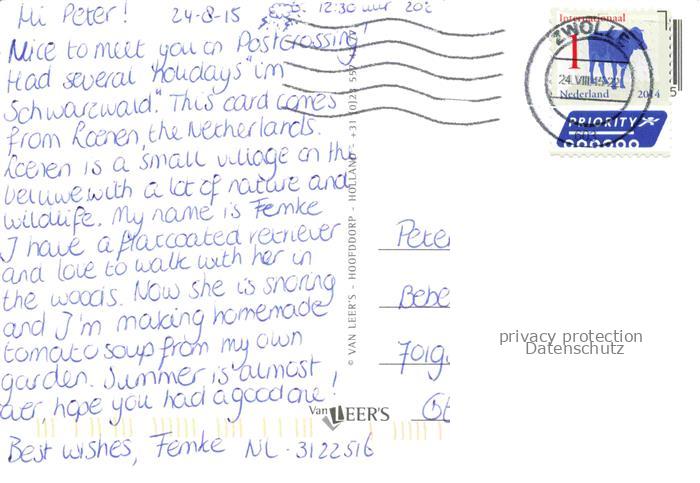 Hi Peter! 24-8-15 12:30 uur 20
Nice to meet you on Postcrossing!
Had several "holidays" im
Schwarzwald". This card comes
from Loenen, the Netherlands.
Loenen is a small village on the
Veluwe with a lot of nature and
wildlife. My name is Femke
I have a flatcoated retriever
and love to walk with her in
the woods. Now she is snoring
and I'm making homemade
tomato soup from my own
garden. Summer is almost
over, hope you had a good one!
Best wishes, Femke NL-3122516
© VAN LEER'S - HOOFDDORP - HOLLAND
Van LEER'S
Internationaal
1
Nederland 2014
PRIORITY
ZWOLLE
24 VIII 15
Peter
Bebe
701g
privacy protection
Datenschutz